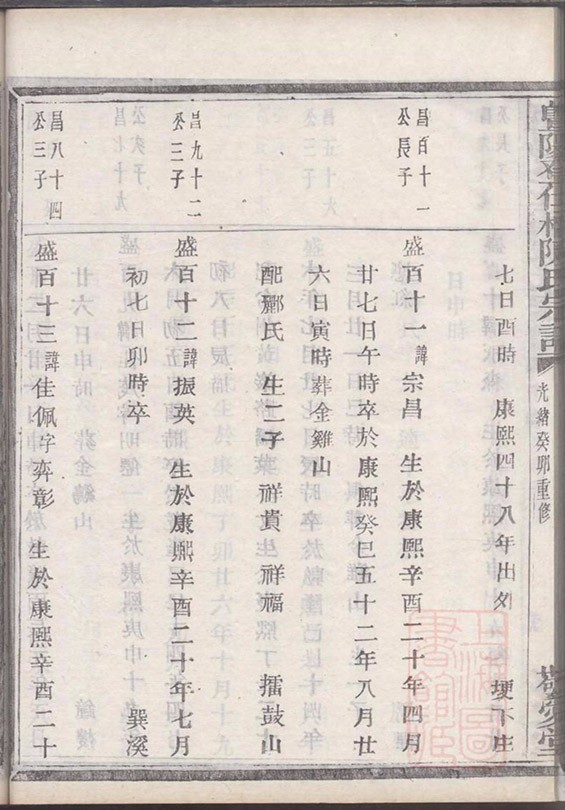 陳氏宗譜
光緒癸卯重修
七日酉時 康熙四十八年出外 埂下庄
昌百十一
公長子
盛百十一諱宗昌 生於康熙辛酉二十年四月
廿七日午時卒於康熙癸巳五十二年八月廿
六日寅時葬金雞山
配酈氏 生二子 祥蕡生祥福 擂鼓山
昌九十二
公三子
盛百十二諱振英 生於康熙辛酉二十年七月
初七日卯時卒 巽溪
昌八十四
公三子
盛百十三諱佳佩字奕彰 生於康熙辛酉二十